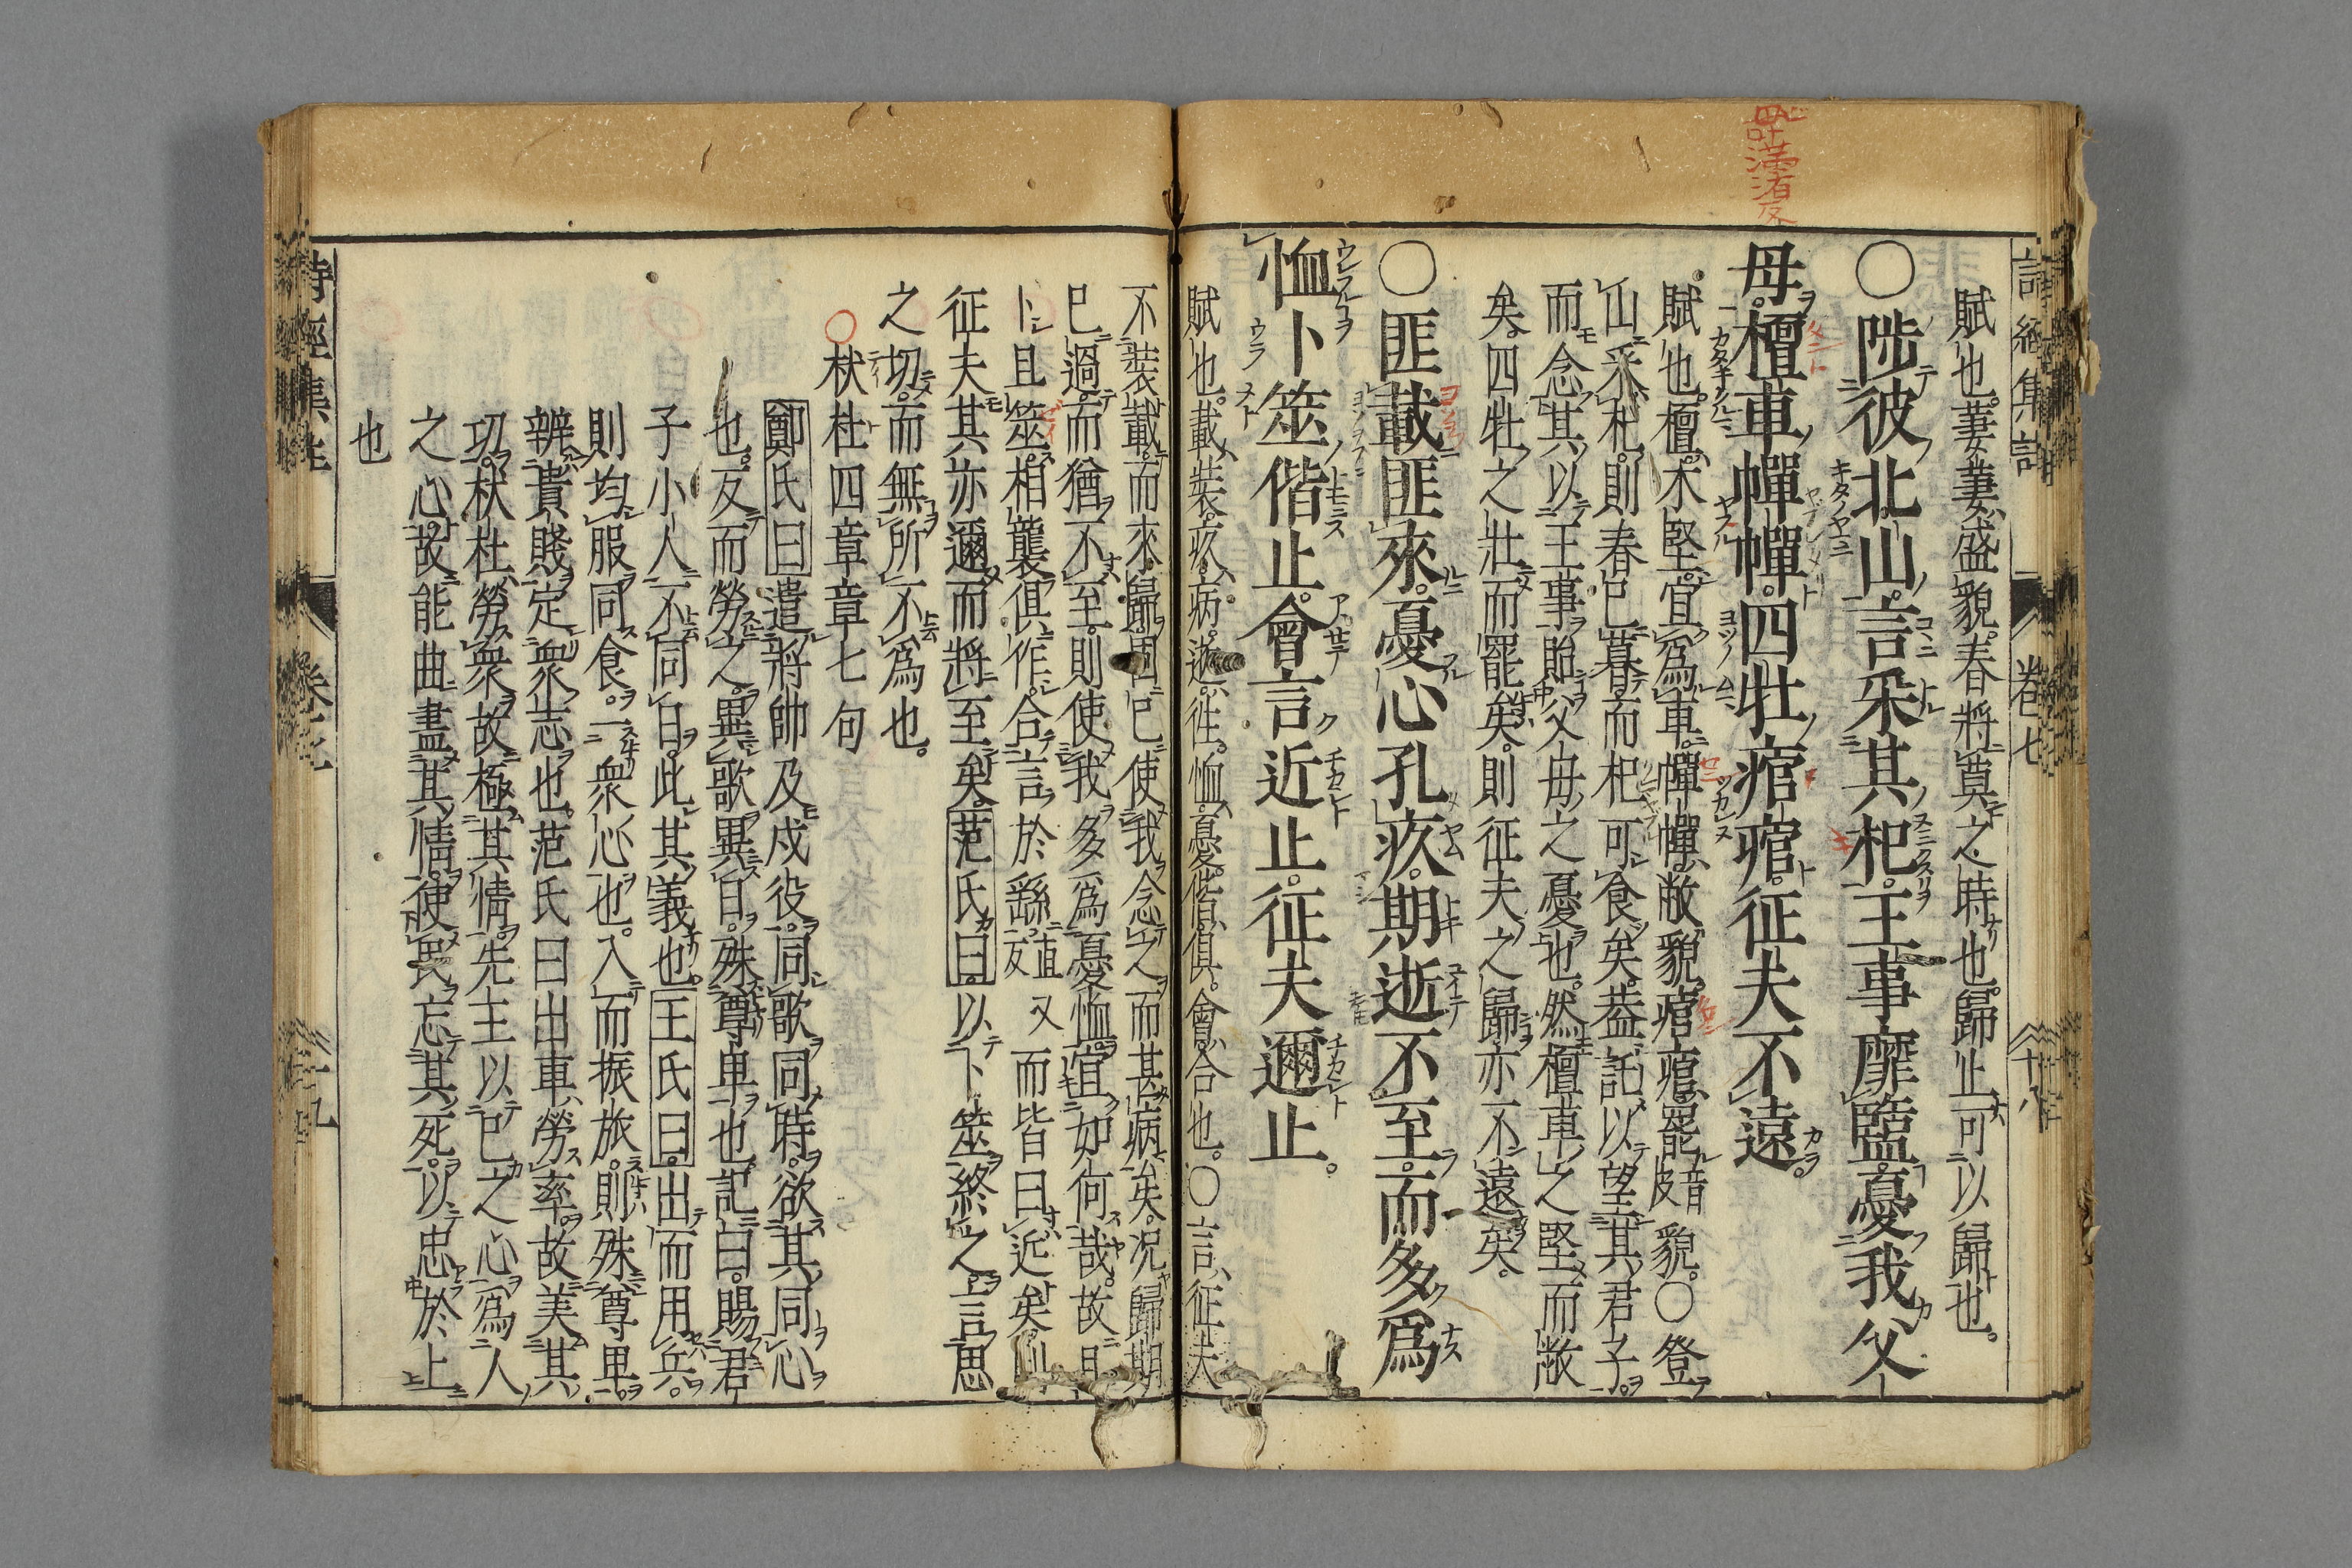 詩經集註 卷七 十八
賦也。萋萋、盛貌。春將莫之時也。歸止、可以歸也。
○陟彼北山。言采其杞。王事靡盬。憂我父
母。檀車幝幝。四牡痯痯。征夫不遠。
賦也。檀、木堅。宜爲車。幝幝、敝貌。痯痯、罷音皮貌。○登
山采杞。則春已暮。而杞可食矣。蓋託以望其君子。
而念其以王事貽父母之憂也。然檀車之堅而敝
矣。四牡之壯而罷矣。則征夫之歸亦不遠矣。
○匪載匪來。憂心孔疚。期逝不至。而多爲
恤。卜筮偕止。會言近止。征夫邇止。
賦也。載、裝。疚、病。逝、徃。恤、憂。偕、俱。會、合也。○言、征夫
不裝載而來歸。固已使我念之而甚病矣。况歸期
已過。而猶不至。則使我多爲憂恤。宜如何哉。故且
卜且筮。相襲俱作。合言於繇直又反而皆曰近矣。則
征夫其亦邇而將至矣。范氏曰。以卜筮終之。言思
之切。而無所不爲也。
○杕杜四章章七句
鄭氏曰遣將帥及戍役。同歌同時。欲其同心
也。反而勞之。異歌異日。殊尊卑也。記曰。賜君
子小人不同日。此其義也。王氏曰。出而用兵。
則均服同食。一衆心也。入而振旅。則殊尊卑。
辨貴賤定衆志也。范氏曰出車勞率。故美其
功。杕杜勞衆。故極其情。先王以己之心爲人
之心。故能曲盡其情。使民忘其死。以忠於上
也
詩經集註